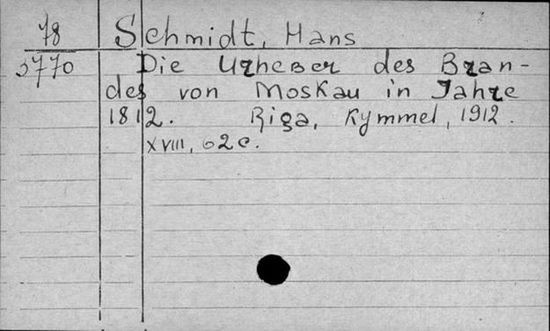 78 Schmidt, Hans
5770 Die Urheber des Bran-
des von Moskau in Jahre
1812. Riga, Kymmel, 1912.
XVIII, 62 c.